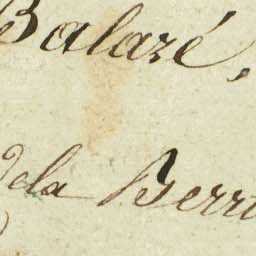 Balazé,
dela Berri